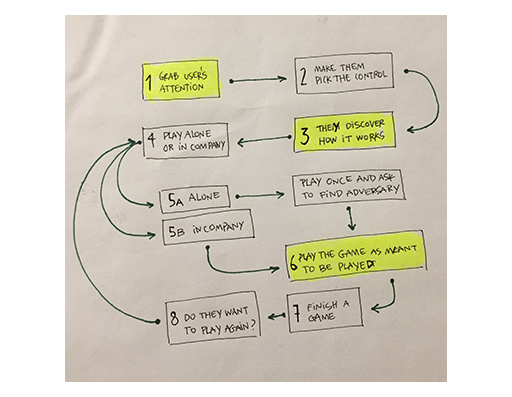 1 GRAB USER'S
ATTENTION
2 MAKE THEM
PICK THE CONTROL
3 THEY DISCOVER
HOW IT WORKS
4 PLAY ALONE
OR IN COMPANY
5A ALONE
PLAY ONCE AND ASK
TO FIND ADVERSARY
5B IN COMPANY
6 PLAY THE GAME AS MEANT
TO BE PLAYED
7 FINISH A
GAME
8 DO THEY WANT
TO PLAY AGAIN?